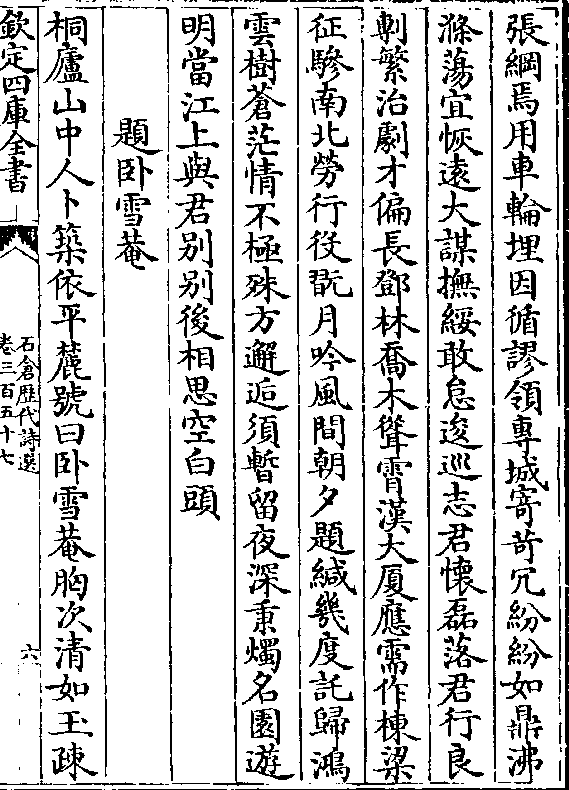 張綱焉用車輪埋因循謬領專城寄苛冗紛紛如鼎沸
滌蕩宜恢遠大謀撫綏敢怠逡巡志君懐磊落君行良
剸繁治劇才偏長鄧林喬木聳霄漢大厦應需作棟梁
征驂南北勞行役翫月吟風間朝夕題緘幾度託歸鴻
雲樹蒼茫情不極殊方邂逅須暫留夜深秉燭名園遊
明當江上與君别别後相思空白頭
題卧雪菴
桐廬山中人卜築依平麓號曰卧雪菴胸次清如玉疎
欽定四庫全書
石倉歴代詩選
卷三百五十七
六